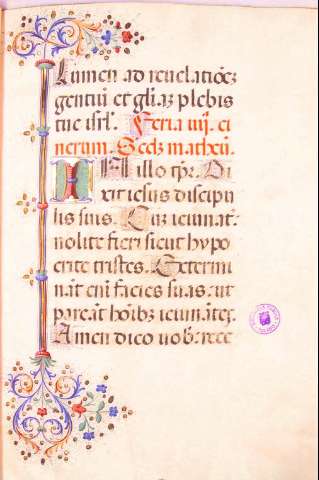 Lumen ad reuelatiõeȝ
gentiũ et gl̃iaȝ plebis
tue isrl̃. Feria iiij. ci
nerum. Scd̃ȝ matheũ.
IN illo tp̃r. Di
xit iesus discipu
lis suis. Cuȝ ieiunat̃.
nolite fieri sicut hypo
crite tristes. Extermi
nãt enĩ facies suas: ut
pareãt hoĩbȝ ieiunãtes.
Amen dico uob̃: rece